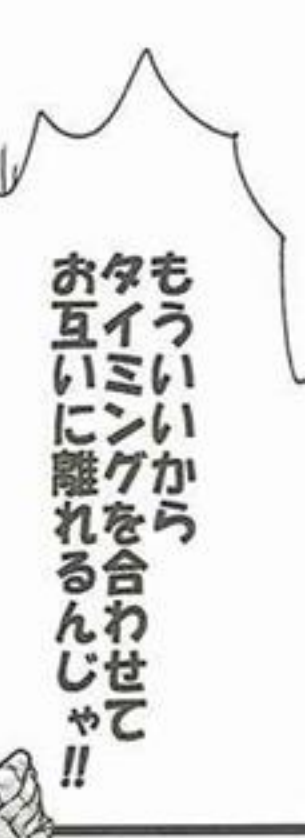 もういいから
タイミングを合わせて
お互いに離れるんじゃ!!